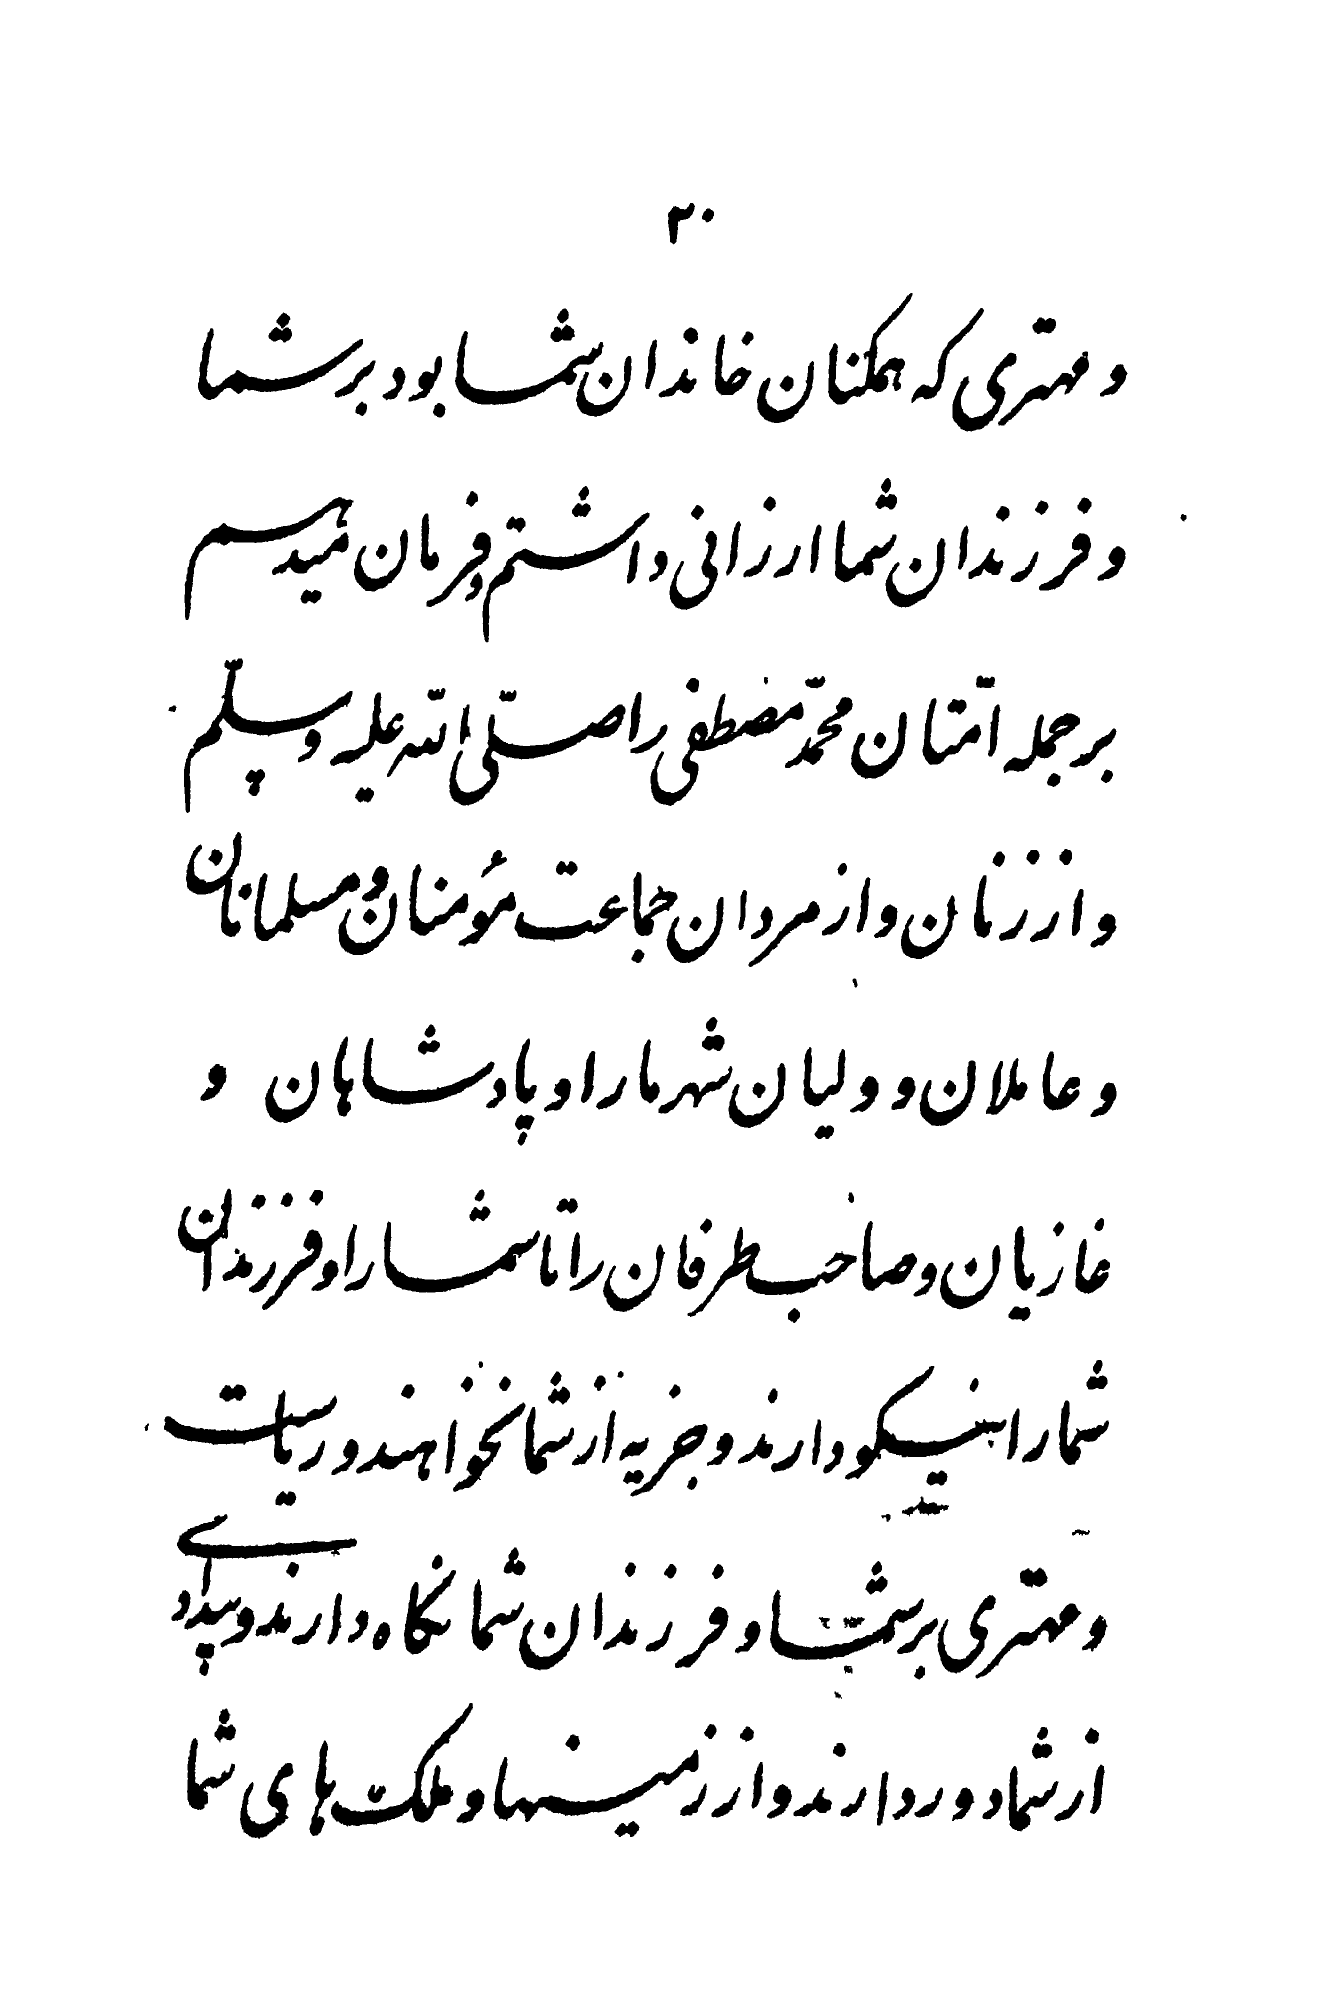 ۲۰
و مهتری که همکنان خاندان شما بود بر شما
و فرزندان شما ارزانی داشتم و فرمان میدهم
بر جمله امتان محمّد مصطفی را صلّی اللّه علیه و سلّم
و از زنان و از مردان جماعت مؤمنان و مسلمانان
و عاملان و ولیان شهر ما را و پادشاهان و
غازیان و صاحب طرفان را تا شما را و فرزندان
شما را نیکو دارند و جزیه از شما نخواهند و ریاست
و مهتری بر شما و فرزندان شما نگاه دارند و بیدادی
از شما دور دارند و از زمینها و ملکت های شما